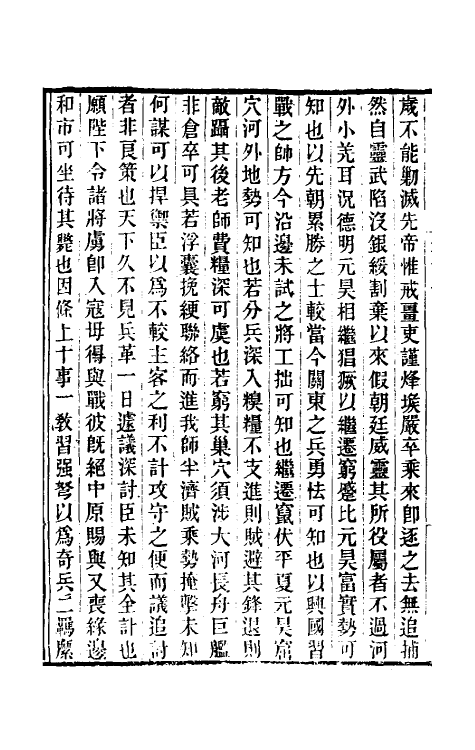 歲不能勦滅先帝惟戒疆吏謹烽堠嚴卒乘來卽逐之去無追捕
然自靈武陷沒銀綏割棄以來假朝廷威靈其所役屬者不過河
外小羌耳況德明元昊相繼猖獗以繼遷窮蹙比元昊富實勢可
知也以先朝累勝之士較當今關東之兵勇怯可知也以興國習
戰之師方今沿邊未試之將工拙可知也繼遷竄伏平夏元昊窟
穴河外地勢可知也若分兵深入糗糧不支進則賊避其鋒退則
敵躡其後老師費糧深可虞也若窮其巢穴須涉大河長舟巨艦
非倉卒可具若浮囊挽綆聯絡而進我師半濟賊乘勢掩擊未知
何謀可以捍禦臣以爲不較主客之利不計攻守之便而議追討
者非良策也天下久不見兵革一日遽議深討臣未知其全計也
願陛下令諸將虜卽入寇毋得與戰彼旣絕中原賜與又喪緣邊
和市可坐待其斃也因條上十事一敎習强弩以爲奇兵二羈縻